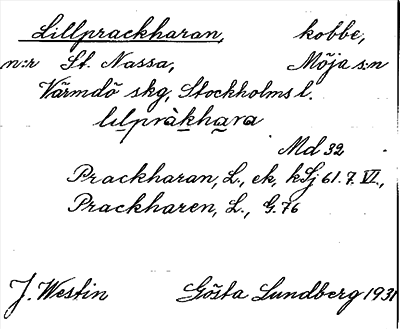 Lillprackharan, kobbe,
n:r St. Nassa, Möja s:n
Värmdö skg, Stockholms l.
lılpràkhara
Md 32
Prackharan, L., ek, kSj 61. 7. VI.,
Prackharen, L., G. 76
J. Westin Gösta Lundberg 1931